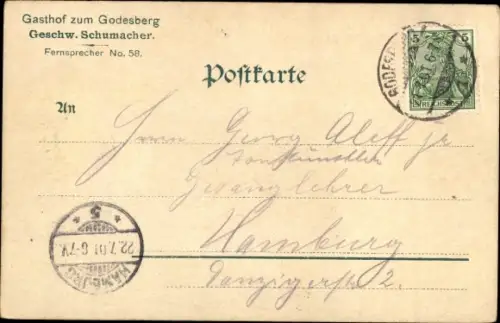 Gasthof zum Godesberg
Geschw. Schumacher.
Fernsprecher No. 58.
Postkarte
An
Herrn Georg Aleff jr
Tonkünstler
Gesanglehrer
Hamburg
Danzigerstr 2.
5 5
REICHSPOST
GODESB
HAMBURG
22.7.01.6-7V.
5